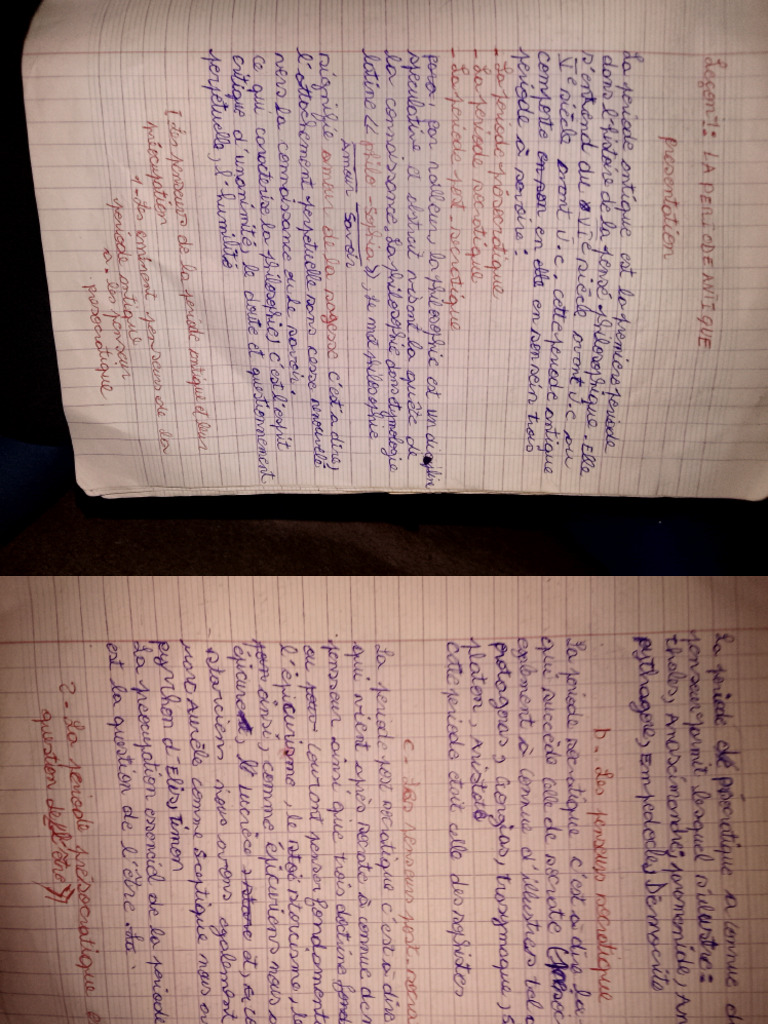 Leçon 1: LA PERIODE ANTIQUE
présentation
La periode antique est la premiere periode
dans l'histoire de la pensé philosophique. Elle
s'entend du VIe siècle avant J.C au
Ve siècle avant J.C. cette periode antique
comporte en son en elle en son sein trois
periode à savoire:
- La periode presocratique
- La periode socratique
- La periode post-socratique
par ailleur, la philosophie est un discipline
speculative et abstrait visant la quête de
la connaissance. La philosophie dans etymologie
latine (philo-sophia),
Amour Savoir
signifie amour de la sagesse c'est a dire,
l'attachement perpetuelle sans cesse renouvelé
vers la connaissance ou le savoir.
ce qui caractérise la philosophie, c'est l'esprit
critique d'unanimité, le doute et questionnement
perpetuelle, l'humilité
I Les penseurs de la periode antique et leur
préocupation
1- Les eminent penseurs de la
periode antique
a- les penseur
presocratique
La periode présocratique a connue
penseur parmit lesquel s'illustre:
thales, Anaximandre, parmenide,
pythagore, Empedocle, Démocrite
b- Les penseurs socratique
La periode socratique c'est a dire la
qui succède celle de socrate
egalement à connue d'illustres tel
protagoras, Gorgias, trasymaque,
platon, Aristote
cette periode était celle des sophistes
c- Les penseurs post-socra
La periode post socratique c'est a dire
qui vient après socrate à connue de
penseur ainsi que trois doctrine fond
ou courant penser fondamenta
l'épicurisme, le stoicisme, le
ainsi, comme épicuriens nous a
épicure, lucrèce et,
stoiciens nous avons egalement
marc Aurèle comme sceptique nous av
pyrrhon d'Elis, timon
La préocupation essenciel de la periode
est la question de l'être.
2- La periode présocratique e
question de l'être